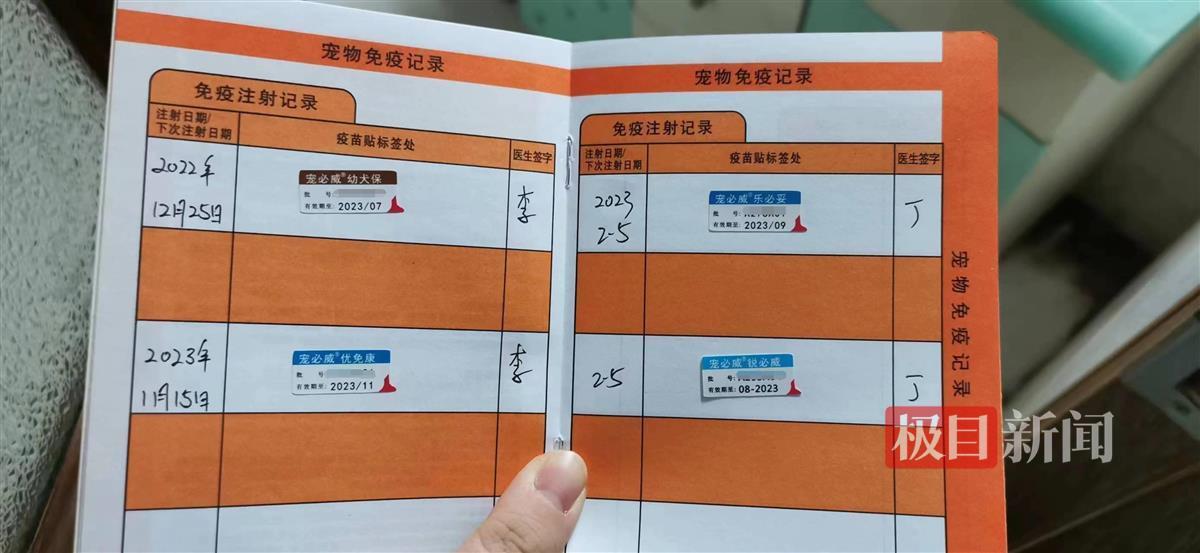 宠物免疫记录
免疫注射记录
注射日期/
下次注射日期
疫苗贴标签处
医生签字
2022年
12月25日
宠必威®幼犬保
批 号:
有效期至: 2023/07
李
2023年
11月15日
宠必威®优免康
批 号:
有效期至: 2023/11
李
宠物免疫记录
免疫注射记录
注射日期/
下次注射日期
疫苗贴标签处
医生签字
2023
2-5
宠必威®乐必妥
批 号:
有效期至: 2023/09
丁
2-5
宠必威®锐必威
批 号:
有效期至: 08-2023
丁
宠物免疫记录
极目新闻